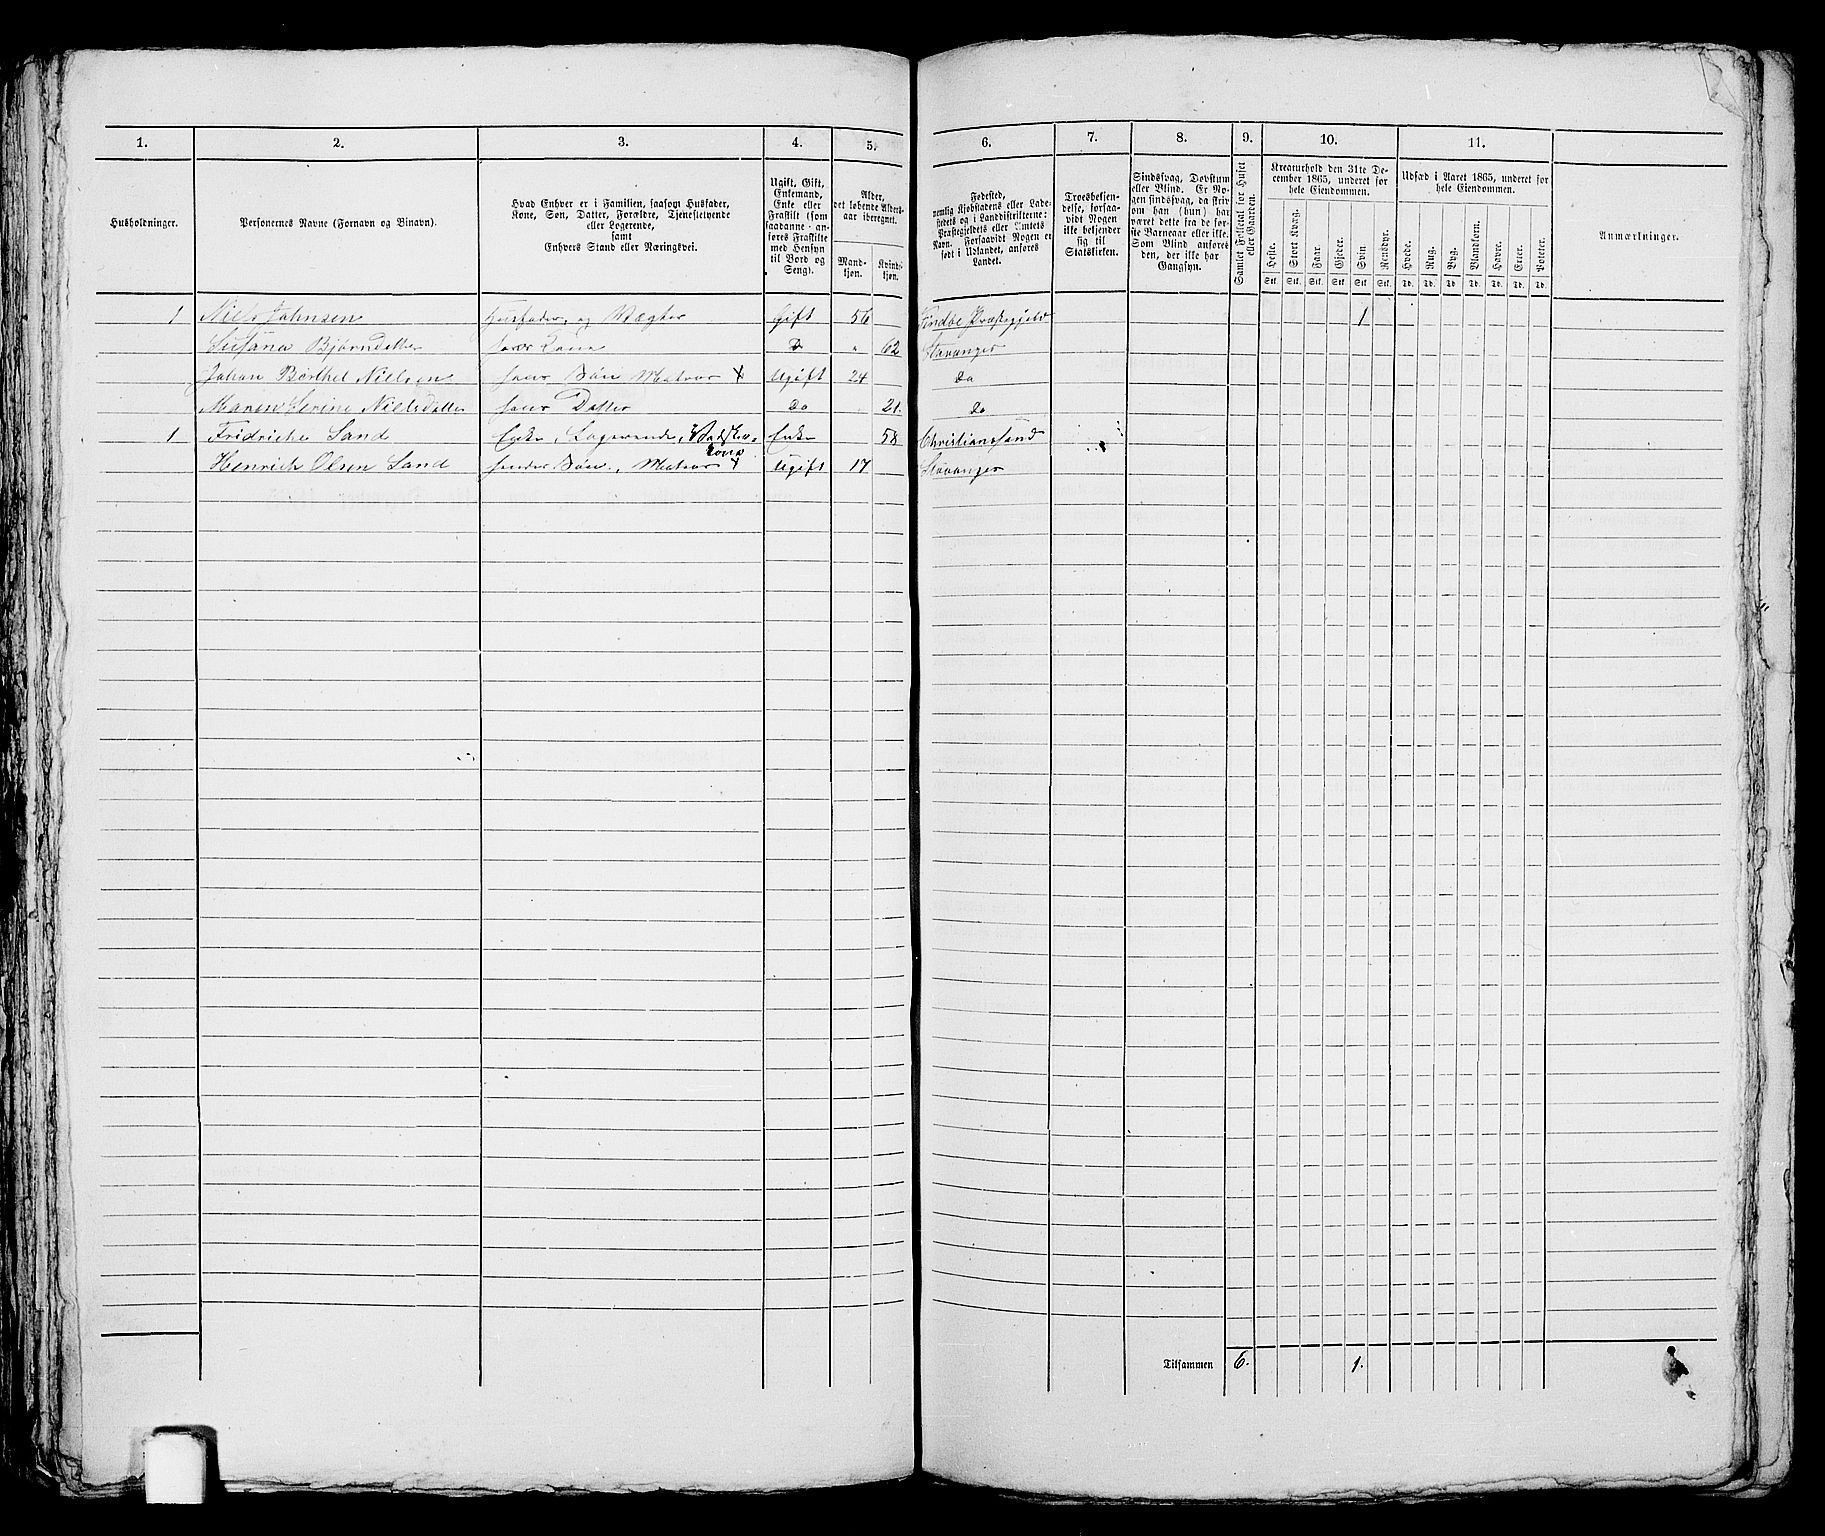 1. 2. 3. 4. 5. 6. 7. 8. 9. 10. 11.
Husholdninger.
Personernes Navne (Fornavn og Binavn).
Hvad Enhver er i Familien, saasom Husfader,
Kone, Søn, Datter, Forældre, Tjenestetyende
eller Logerende,
samt
Enhvers Stand eller Næringsvei.
Ugift, Gift,
Enkemand,
Enke eller
Fraskilt (som
saadanne anføres
Fraskilte
med Hensyn
til Bord og
Seng).
Alder,
det løbende Alders-
aar iberegnet.
Mand-
kjøn.
Kvind-
kjøn.
Fødested,
nemlig Kjøbstadens eller Lade-
stedets og i Landdistrikterne:
Præstegjeldets eller Amtets
Navn. Forsaavidt Nogen er
født i Udlandet, anføres
Landet.
Troesbekjen-
delse, forsaa-
vidt Nogen
ikke bekjender
sig til
Statskirken.
Sindssvag, Døvstum
eller Blind. Er No-
gen sindssvag, da hvis
om han (hun) har
været dette fra de før-
ste Barneaar eller ikke.
Som Blind anføres
den, der ikke har
Gangsyn.
Samlet Folketal for Huset
eller Gaarden.
Kreaturhold den 31te De-
cember 1865, underet for
hele Eiendommen.
Heste. Stort Kvæg. Faar. Gjeder. Svin. Rensdyr.
Stk. Stk. Stk. Stk. Stk. Stk.
Udsæd i Aaret 1865, underet for
hele Eiendommen.
Hvede. Rug. Byg. Blandkorn. Havre. Erter. Poteter.
Td. Td. Td. Td. Td. Td. Td.
Anmærkninger.
1 Niels Johnsen Husfader, og Vægter Gift 56 Findøe Præstegjeld 1
Susana Bjørndatter hans Kone Do " 62 Stavanger
Johan Berthel Nielsen hans Søn Matros X Ugift 24 Do
Maren Serine Nielsdatter hans Datter Do 21. Do
1 Fridriche Sand Enke, Logerende, Vadsker-
kone Enke 58 Christianssand
Henrich Olsen Sand hendes Søn, Matros X Ugift 17 Stavanger
Tilsammen 6. 1.